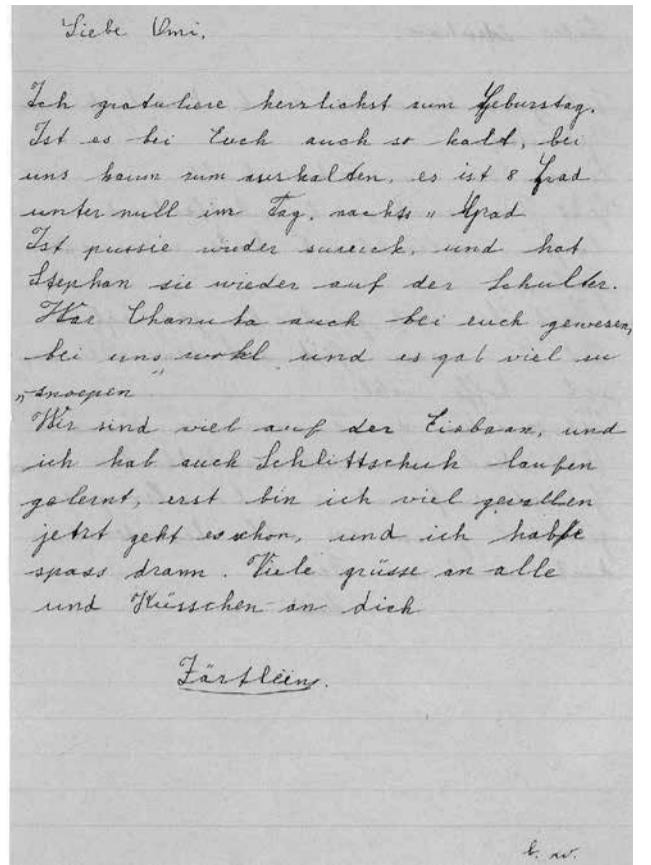 Liebe Omi.
Ich gratuliere herzlichst zum Geburstag.
Ist es bei Euch auch so kalt, bei
uns kaum zum aushalten, es ist 8 Grad
unter null im Tag. nachts 11 Grad
Ist pussie wieder zurück, und hat
Stephan sie wieder auf der Schulter.
War Chanuka auch bei euch gewesen,
bei uns wohl und es gab viel zu
„snoepen”
Wir sind viel auf der Eisbaan, und
ich hab auch Schlittschuh laufen
gelernt, erst bin ich viel gevallen
jetzt geht es schon, und ich habe
spass drann. Viele grüsse an alle
und Küsschen an dich
b. w.